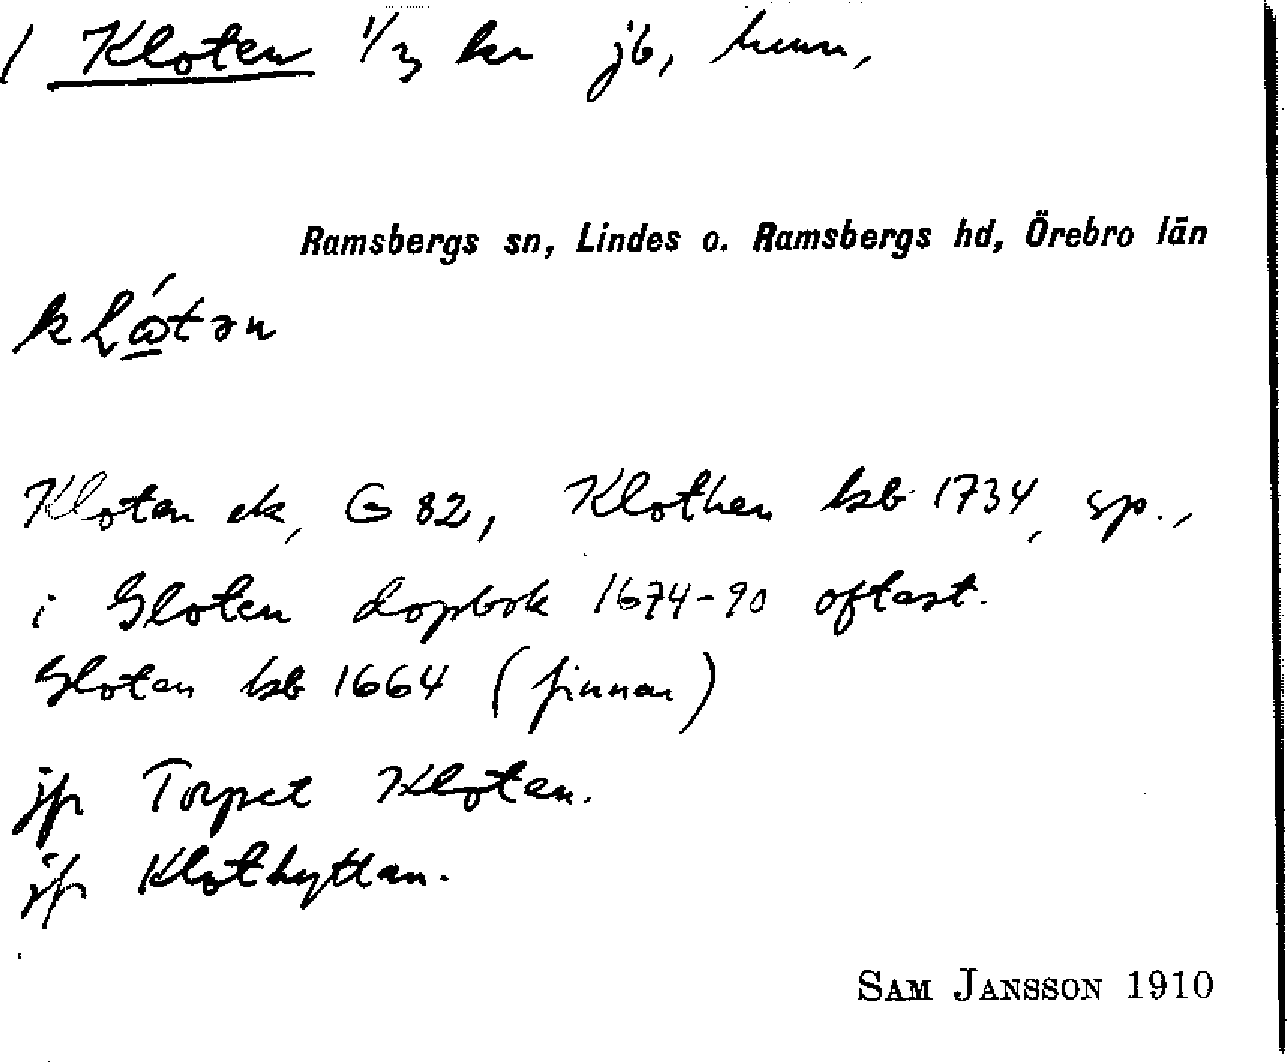 / Kloten 1/3 kr jb, hemm,
Ramsbergs sn, Lindes o. Ramsbergs hd, Örebro län
kLώ̲tən
Kloten ek, G 82, Klothen hb 1734, sp.,
i Gloten dopbok 1674-90 oftast.
Gloten hb 1664 (finnar)
jfr Torpet Kloten.
jfr Klothyttan.
SAM JANSSON 1910